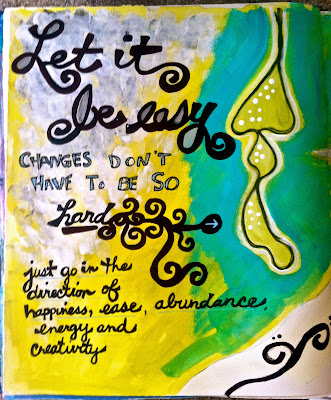 Let it
be easy
CHANGES DON'T
HAVE TO BE SO
hard
just go in the
direction of
happiness, ease, abundance,
energy and
creativity